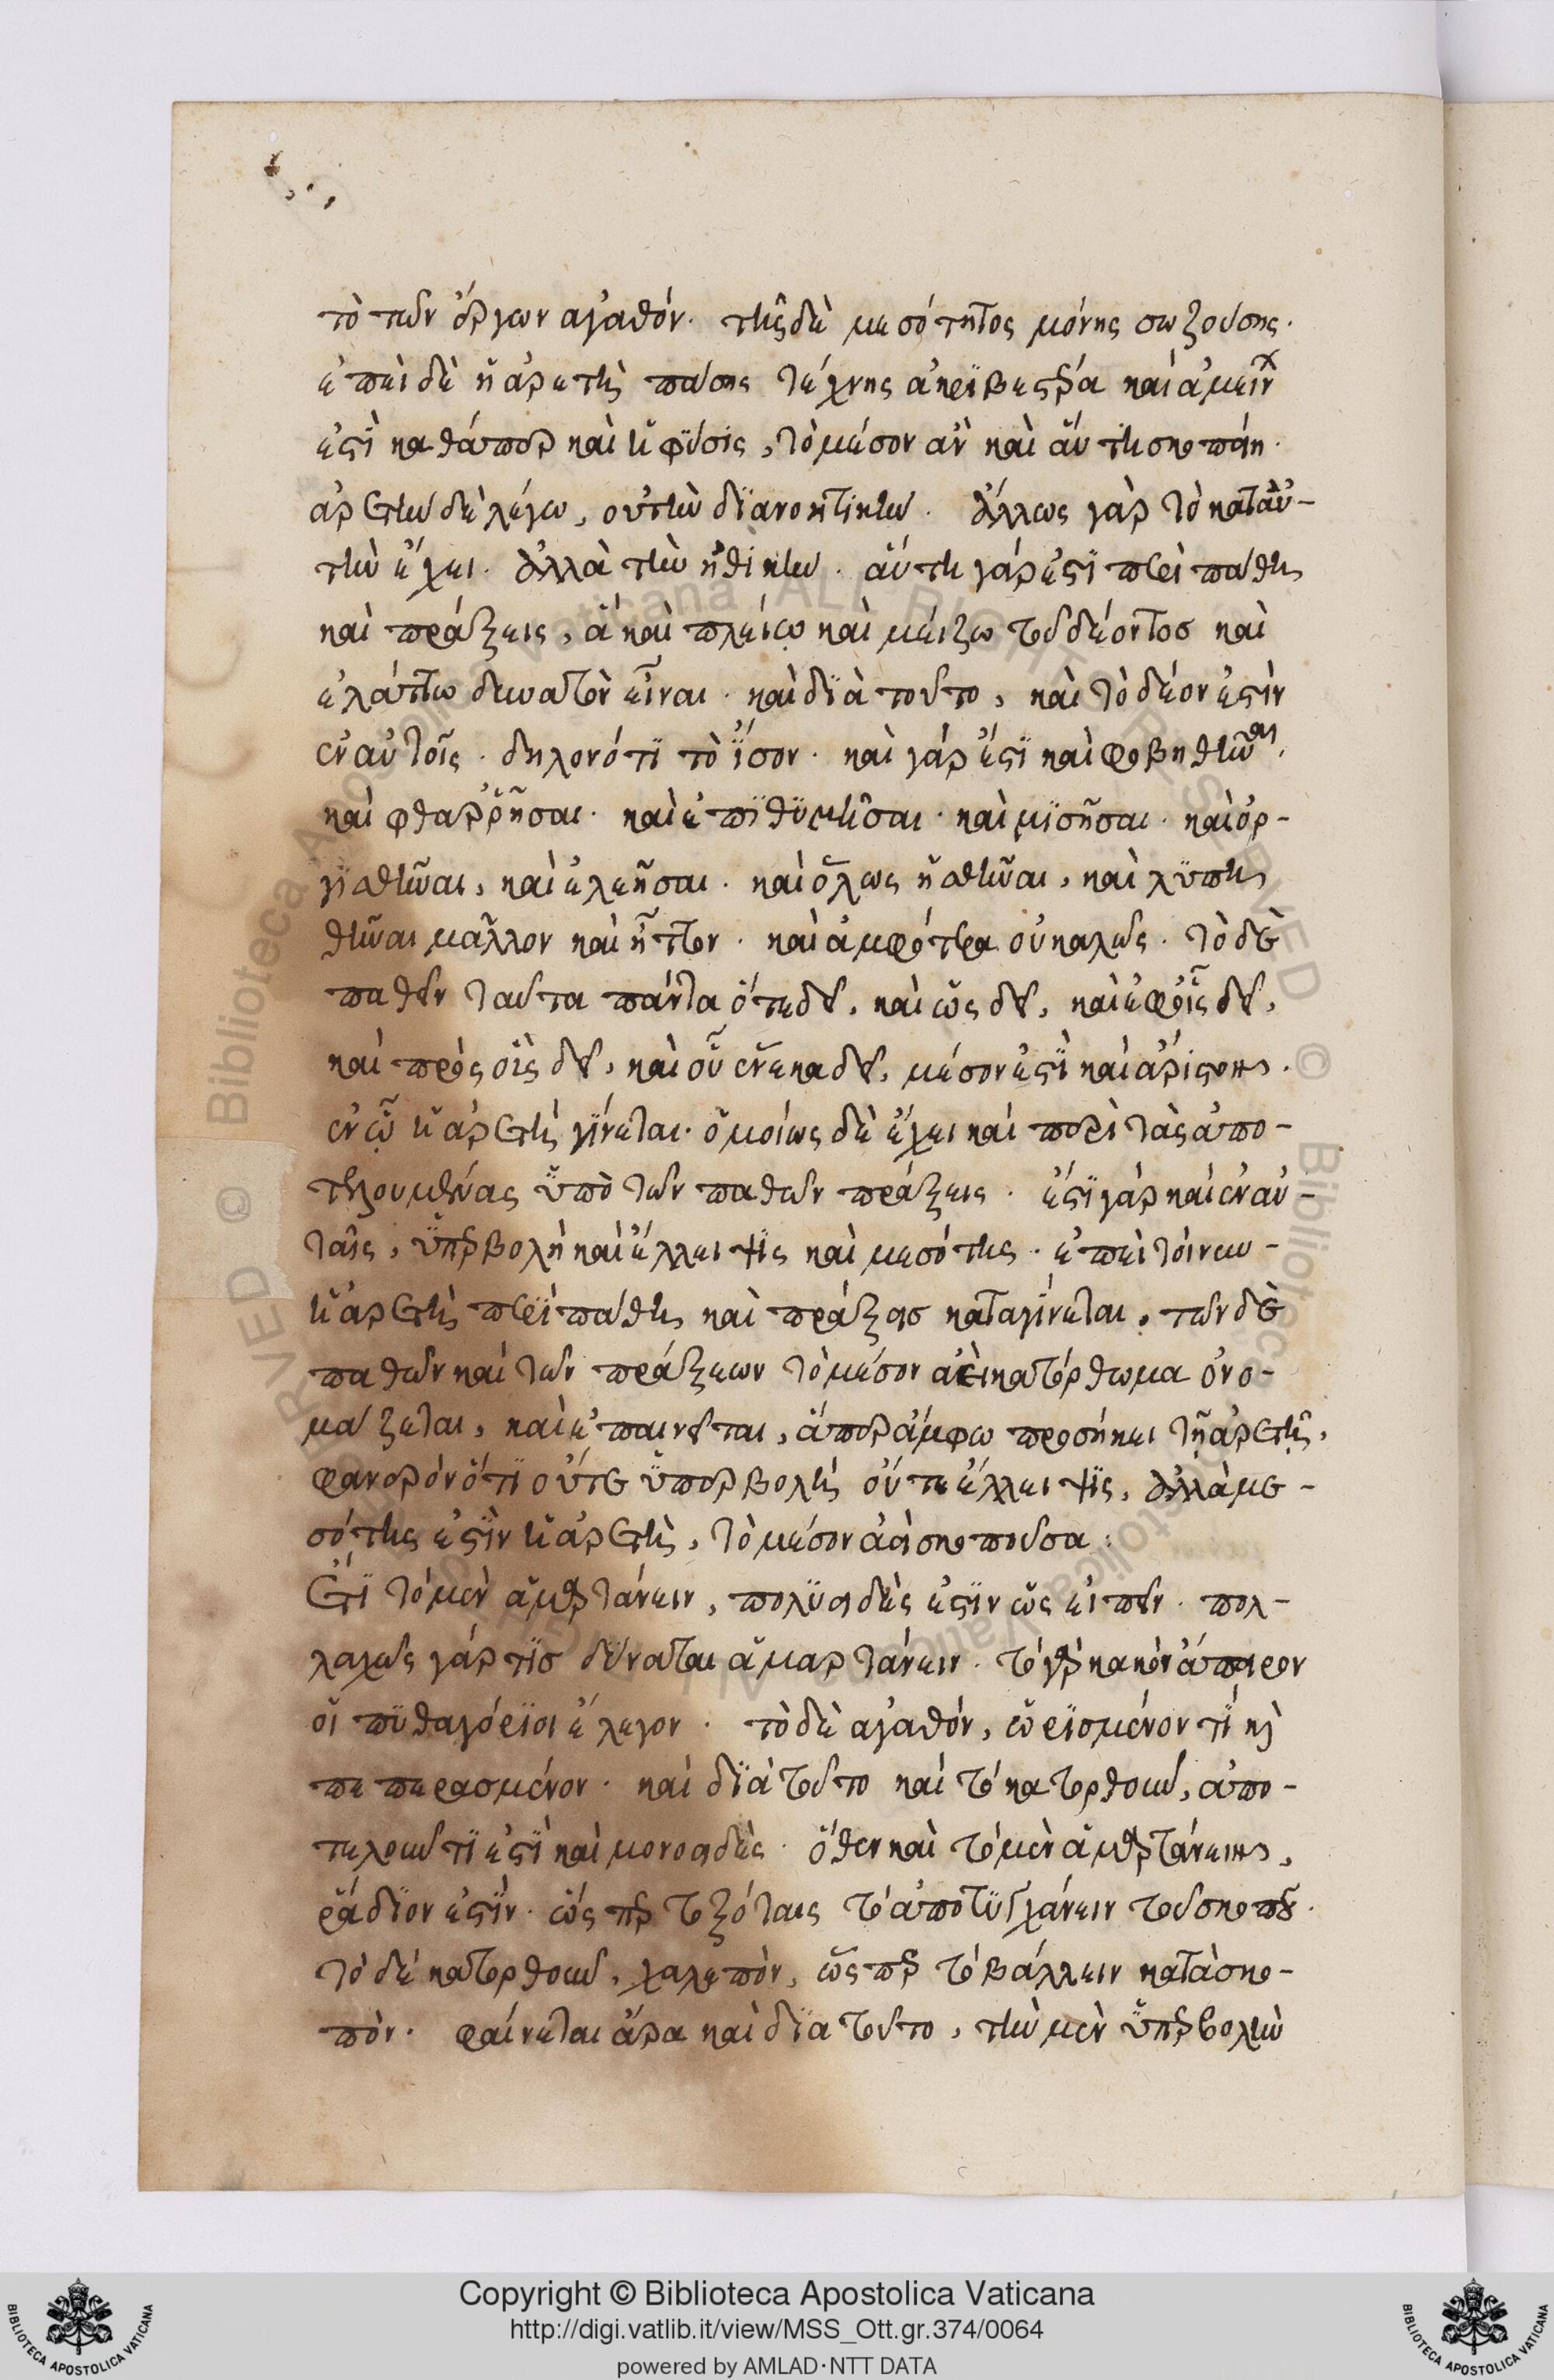 τὸ τῶν ἔργων ἀγαθόν. τῆς δὲ μεσότητος μόνης σωζούσης.
ἐπεὶ δὲ ἡ ἀρετὴ πάσης τέχνης ἀκριβεστέρα καὶ ἀμείνων
ἐστὶ καθάπερ καὶ ἡ φύσις, τὸ μέσον ἂν καὶ αὕτη σκοποίη.
ἀρετὴν δὲ λέγω, οὐ τὴν διανοητικήν. ἄλλως γὰρ τὸ κατ' αὐ-
τὴν ἔχει. ἀλλὰ τὴν ἠθικήν. αὕτη γάρ ἐστι περὶ πάθη
καὶ πράξεις, ἃ καὶ πλείω καὶ μείζω τοῦ δέοντος καὶ
ἐλάττω δυνατὸν εἶναι. καὶ διὰ τοῦτο, καὶ τὸ δέον ἐστὶν
ἐν αὐτοῖς. δηλονότι τὸ ἴσον. καὶ γάρ ἐστι καὶ φοβηθῆναι.
καὶ θαρρῆσαι. καὶ ἐπιθυμῆσαι. καὶ μισῆσαι. καὶ ὀρ-
γισθῆναι, καὶ ἐλεῆσαι. καὶ ὅλως ἡσθῆναι, καὶ λυπη
θῆναι μᾶλλον καὶ ἧττον. καὶ ἀμφότερα οὐ καλῶς. τὸ δὲ
παθεῖν ταῦτα πάντα ὅτε δεῖ, καὶ ὡς δεῖ, καὶ ἐφ' οἷς δεῖ,
καὶ πρὸς οἷς δεῖ, καὶ οὗ ἕνεκα δεῖ, μέσον ἐστὶ καὶ ἄριστον.
ἐν ᾧ ἡ ἀρετὴ γίνεται. ὁμοίως δὲ ἔχει καὶ περὶ τὰς ἀπο-
τελουμένας ὑπὸ τῶν παθῶν πράξεις. ἔστι γὰρ καὶ ἐν αὐ-
ταῖς, ὑπερβολὴ καὶ ἔλλειψις καὶ μεσότης. ἐπεὶ τοίνυν-
ἡ ἀρετὴ περὶ πάθη καὶ πράξεις καταγίνεται, τῶν δὲ
παθῶν καὶ τῶν πράξεων τὸ μέσον ἀεὶ κατόρθωμα ὀνο-
μάζεται, καὶ ἐπαινεῖται, ἅπερ ἄμφω προσήκει τῇ ἀρετῇ,
φανερὸν ὅτι οὔτε ὑπερβολὴ οὔτε ἔλλειψις, ἀλλὰ με-
σότης ἐστὶν ἡ ἀρετὴ, τὸ μέσον ἀεὶ σκοποῦσα:
Ἔτι τὸ μὲν ἁμαρτάνειν, πολυειδές ἐστιν ὡς εἰπεῖν. πολ-
λαχῶς γάρ τις δύναται ἁμαρτάνειν. τὸ γὰρ κακὸν ἄπειρον
οἱ πυθαγόριοι ἔλεγον. τὸ δὲ ἀγαθόν, ὡρισμένον τὶ καὶ
πεπερασμένον. καὶ διὰ τοῦτο καὶ τὸ κατορθοῦν, ἀπο-
τελοῦν τί ἐστι καὶ μονοειδὲς. ὅθεν καὶ τὸ μὲν ἁμαρτάνειν,
ῥάδιόν ἐστιν. ὥσπερ τοξόταις τὸ ἀποτυγχάνειν τοῦ σκοποῦ.
τὸ δὲ κατορθοῦν, χαλεπὸν, ὥσπερ τὸ βάλλειν κατὰ σκο-
πὸν. φαίνεται ἄρα καὶ διὰ τοῦτο, τὴν μὲν ὑπερβολὴν
Copyright © Biblioteca Apostolica Vaticana
http://digi.vatlib.it/view/MSS_Ott.gr.374/0064
powered by AMLAD·NTT DATA